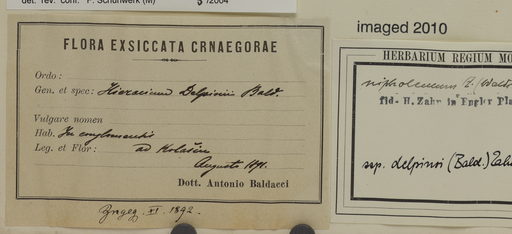 det. rev. conf. F. Schuhwerk (M) /2004
FLORA EXSICCATA CRNAEGORAE
Ordo:
Gen. et spec: Hieracium Delpinii Bald.
Vulgare nomen
Hab. In conglomeratis
Leg. et Flor: ad Kolašin
Augusto 1891.
Dott. Antonio Baldacci
XI. 1892.
imaged 2010
HERBARIUM REGIUM MO
fid. H. Zahn in Engler Pfla
ssp. delpinii (Bald.) Zahn